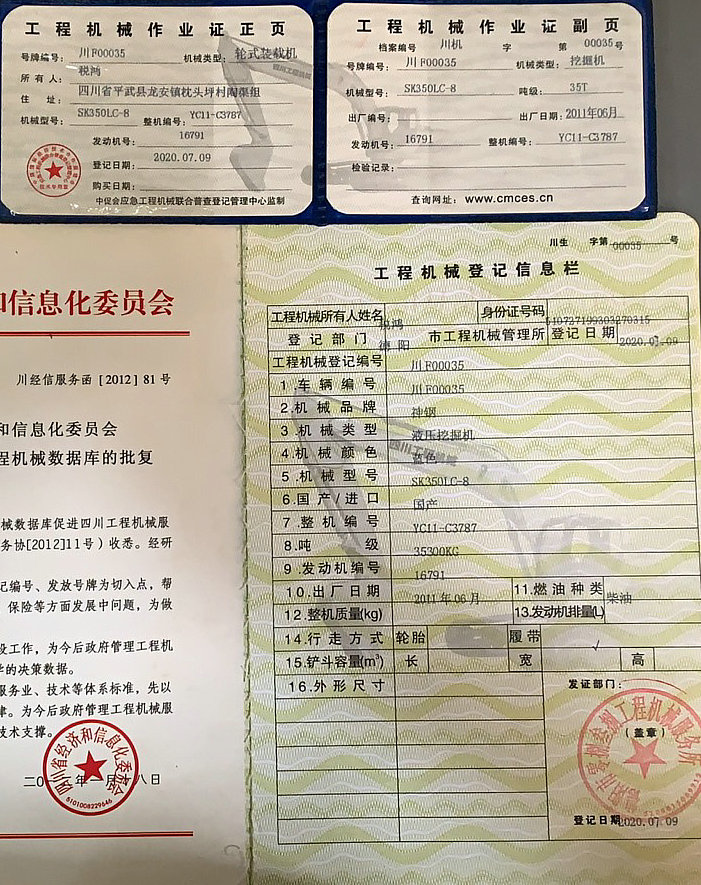 工程机械作业证正页
号牌编号：川F00035 机械类型：轮式装载机
所有人：税鸿
住址：四川省平武县龙安镇枕头坪村陶渠组
机械型号：SK350LC-8 整机编号：YC11-C3787
发动机号：16791
登记日期：2020.07.09
购买日期：
中促会应急工程机械联合普查登记管理中心监制
工程机械作业证副页
档案编号 川机 字 第 00035号
号牌编号：川F00035 机械类型：挖掘机
机械型号：SK350LC-8 吨级：35T
出厂编号： 出厂日期：2011年06月
发动机号：16791 整机编号：YC11-C3787
检验记录：
查询网址：www.cmces.cn
和信息化委员会
川经信服务函[2012]81号
和信息化委员会
程机械数据库的批复
械数据库促进四川工程机械服
务协[2012]11号）收悉。经研
记编号、发放号牌为切入点，帮
保险等方面发展中问题，为做
设工作，为今后政府管理工程机
学的决策数据。
服务业、技术等体系标准，先以
律。为今后政府管理工程机械服
技术支撑。
四川省经济和信息化委员会
5101008229646
川生 字第 00035 号
工程机械登记信息栏
工程机械所有人姓名 税鸿 身份证号码 510727199303270315
登记部门 德阳 市工程机械管理所 登记日期 2020.07.09
工程机械登记编号 川F00035
1.车辆编号 川F00035
2.机械品牌 神钢
3.机械类型 液压挖掘机
4.机械颜色 蓝色
5.机械型号 SK350LC-8
6.国产/进口 国产
7.整机编号 YC11-C3787
8.吨级 35300KG
9.发动机编号 16791
10.出厂日期 2011年06月 11.燃油种类 柴油
12.整机质量(kg) 13.发动机排量(L)
14.行走方式 轮胎 履带 √
15.铲斗容量(m³) 长 宽 高
16.外形尺寸
发证部门：
（盖章）
登记日期 2020.07.09